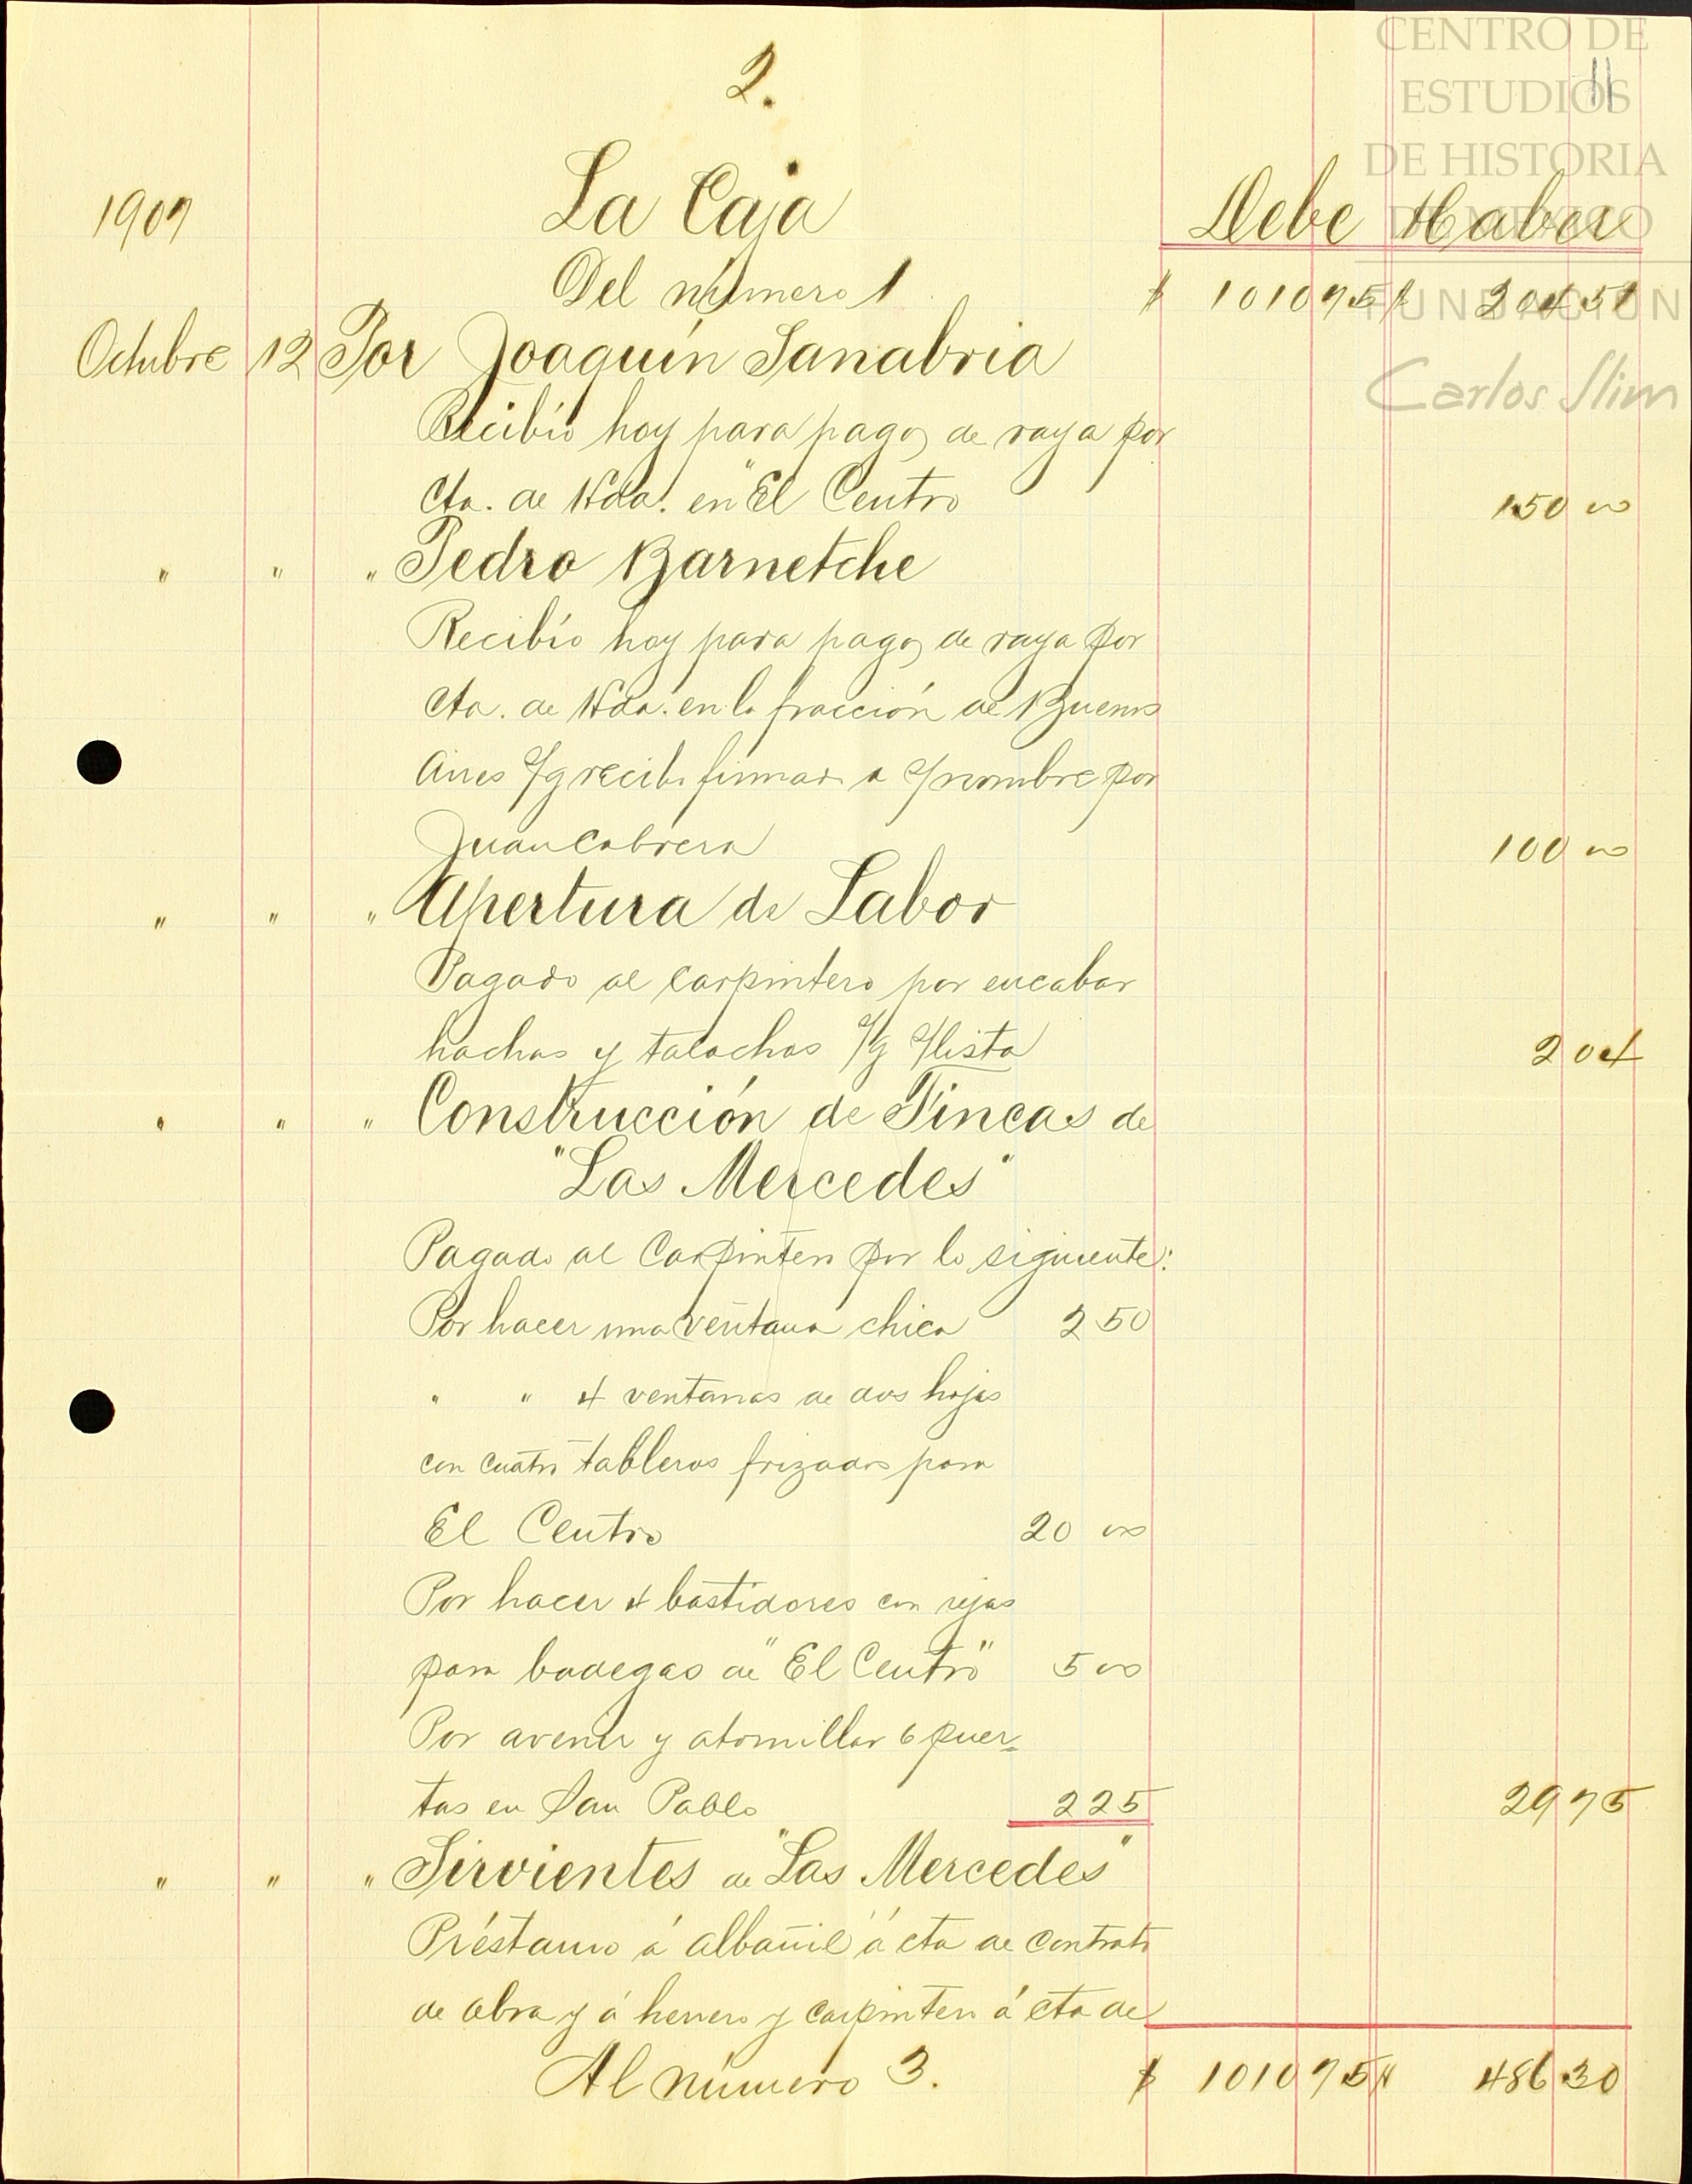 CENTRO DE
ESTUDIOS
DE HISTORIA
DE MÉXICO
FUNDACIÓN
Carlos Slim
2.
11
1907 La Caja Debe Haber
Del número 1 $ 1010 75 $ 204 51
Octubre 12 Por Joaquín Sanabria
Recibió hoy para pagos de raya por
Cta. de Hda. en "El Centro 150 00
" " " Pedro Barnetche
Recibío hoy para pagos de raya por
Cta. de Hda. en la fracción de Buenos
Aires S/g recibo firmado a s/nombre por
Juan Cabrera 100 00
" " " Apertura de Labor
Pagado al carpintero por encabar
hachas y talachos S/g s/lista 2 04
" " " Construcción de Fincas de
"Las Mercedes"
Pagado al Carpintero por lo siguiente:
Por hacer una ventana chica 2 50
" " 4 ventanas de dos hojas
con cuatro tableros frizados para
El Centro 20 00
Por hacer 4 bastidores con rejas
para bodegas de "El Centro" 5 00
Por avenir y atornillar 6 puer=
tas en San Pablo 2 25 29 75
" " " Sirvientes de "Las Mercedes"
Préstamo á albañil á cta de contrato
de obra y á herrero y carpintero á cta de
Al número 3. $ 1010 75 $ 486 30